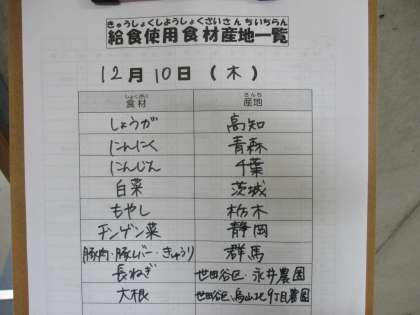 きゅうしょくしようしょくざいさんちいちらん
給食使用食材産地一覧
12月10日(木)
しょくざい さんち
食材 産地
しょうが 高知
にんにく 青森
にんじん 千葉
白菜 茨城
もやし 栃木
チンゲン菜 静岡
豚肉・豚レバー・きゅうり 群馬
長ねぎ 世田谷区・永井農園
大根 世田谷区・烏山北9丁目農園